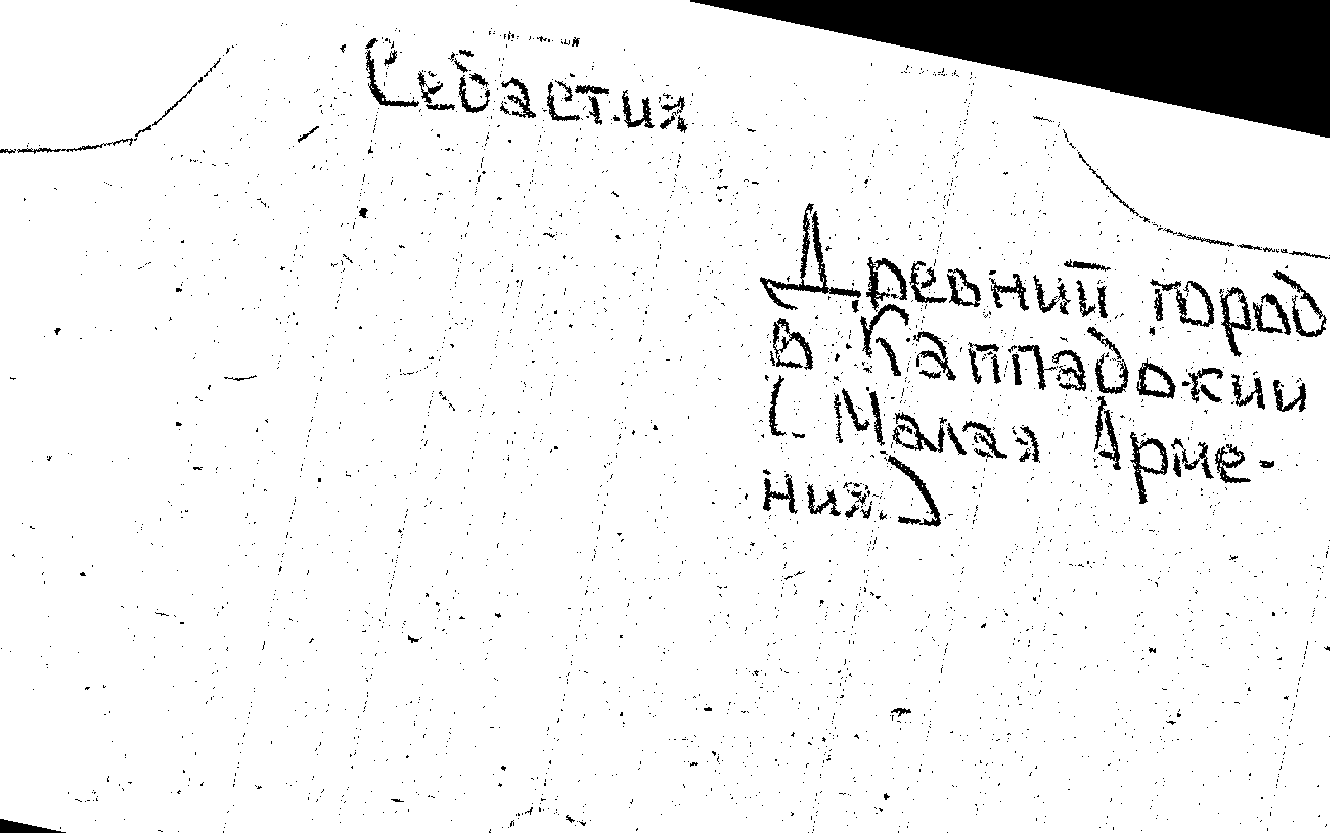 Себастия
Древний город
в Каппадокии
(Малая Арме-
ния.)